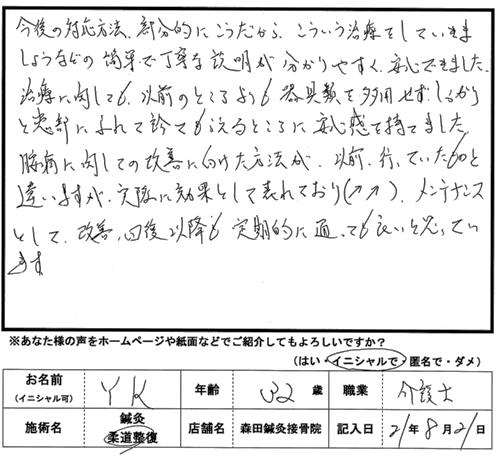 今後の対応方法、部分的にこうだから、こういう治療をしていきま
しょうなどの簡単で丁寧な説明が分かりやすく、安心できました。
治療に関しても、以前のところよりも器具数を多用せず、しっかり
と患部にふれて診てもらえるところに安心感を持てました。
腰痛に関しての改善に向けた方法が、以前、行っていたものと
違いますが、実際に効果として表れており(↗↗)、メンテナンス
として、改善、回復以降も定期的に通っても良いと思ってい
ます
※あなた様の声をホームページや紙面などでご紹介してもよろしいですか?
(はい・イニシャルで・匿名で・ダメ)
お名前 (イニシャル可) YK 年齢 32 歳 職業 介護士
施術名 鍼灸 柔道整復 店舗名 森田鍼灸接骨院 記入日 21年8月21日